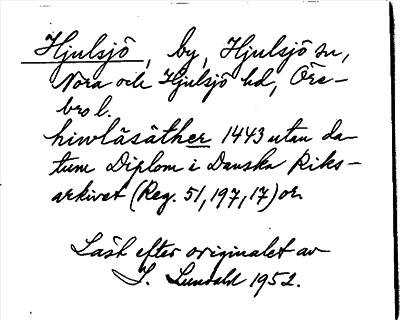 Hjulsjö, by, Hjulsjö sn,
Nora och Hjulsjö hd, Öre-
bro l.
hiwläsäther 1443 utan da-
tum Diplom i Danska Riks-
arkivet (Reg. 51, 197, 17) or.
Läst efter originalet av
S. Lundahl 1952.